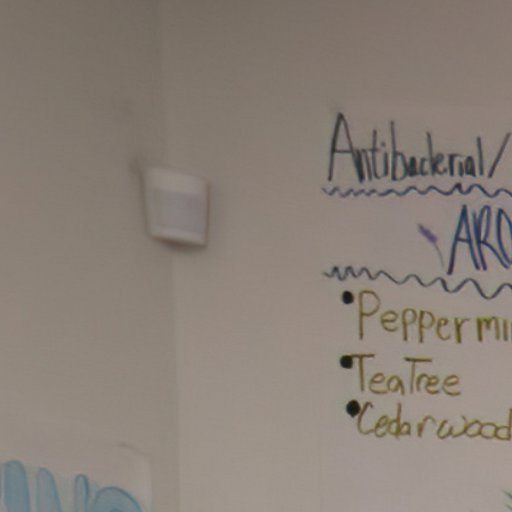 Antibacterial/
ARO
• Peppermi
• Tea Tree
• Cedarwood